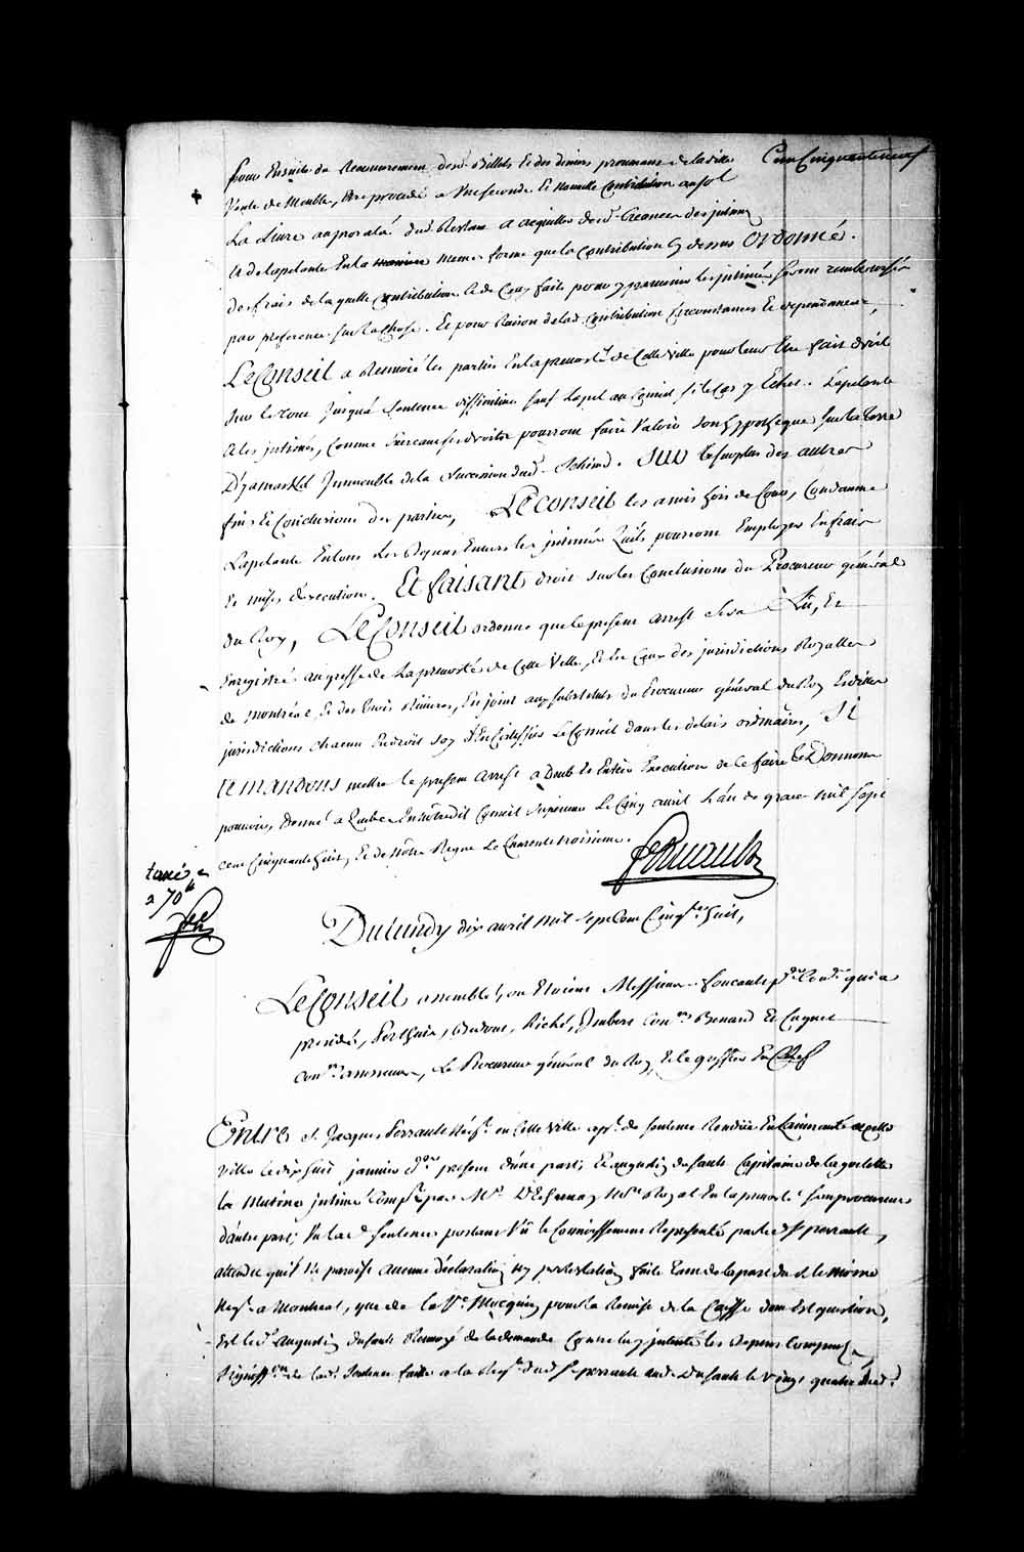 Cent Cinquante neuf
pour Ensuite du Recouvrement desd. Billets Et des deniers provenans de lad.
Vente de Meubles, Etre procedé a une seconde Et nouvelle Contribution au sol
La Livre au prorata dud. Restant a acquitter desd. Creances des intimés
Et de Lapelante En la même forme que la Contribution cy dessus Ordonné.
des frais de laquelle Contribution Et de Ceux faits pour y parvenir les intimés seront remboursés
par preference sur la Chose. Et pour Raison de lad. Contribution Circonstances Et dependances,
Le Conseil a Renvoié les parties En la prevosté de Cette Ville pour leur Etre fait droit
sur le tout jusqu'a sentence diffinitive sauf Lapel au Conseil si le Cas y Echet. Lapelante
Et les intimés, Comme Exerceans ses droits pourront faire Valoir son hypotheque sur la terre
D'yamaska Immeuble de la Succession dud. . Sur Le surplus des autres
fins Et Conclusions des parties, Le Conseil les a mis hors de Cour, Condamne
Lapelante En tous Les Depens Envers les intimés quils pourront Employer En frais
Et mises d'execution. Et faisant droit sur les Conclusions du Procureur général
du Roy, Le Conseil ordonne que le present arrest sera Lû, Et
Enregistré au greffe de La prevosté de Cette Ville, Et En Ceux des jurisdictions Royalles
de Montréal Et des trois Rivieres, Enjoint aux substituts du Procureur général du Roy Esdittes
jurisdictions chacun En droit soy d'En Certiffier Le Conseil dans les delais ordinaires, Si
te Mandons mettre le present Arrest a Deuë Et Entière Execution de ce faire te Donnons
pouvoir, Donné a Quebec En notredit Conseil Superieur Le Cinq avril L'an de grace mil sept
cent Cinquante huit, Et de Notre Regne Le Quarente troisieme.
taxé a
270 tt
Du Lundy dix avril Mil sept Cent Cinqte. huit,
Le Conseil assemblé, ou Etoient Messieurs foucault pr. Conr. qui a
presidé, Perthuis, Riché, Imbert Conrs. Benard Et Cugnet
Conrs. assesseurs, Le Procureur général du Roy, Et le greffier En Chef
Entre Sr. Jacques Perrault Négt. en Cette Ville apt. de sentence Rendüe En Lamirauté de cette
Ville le dix huit janvier dr. present d'une part; Et augustin dufault Capitaine de la goelette
la Mutine intimé Comp. par Me. Nre Royal En la prevosté son procureur
d'autre part; Vu la de. sentence portant Vû le Connoissement Representé par led. Sr. perrault,
attendu quil ne paroist aucune declaration ny protestation faite tant de la part du
Negt. a Montreal, que de la Ve. Mocquin pour la Remise de la Caisse dont Est question,
Est led. augustin dufault Renvoyé de la demande Contre luy intentée les depens Compensés,
Signiffon. de lad. Sentence faite a la Reqte. dud. Sr. perrault aud. Dufault le vingt quatre dud.